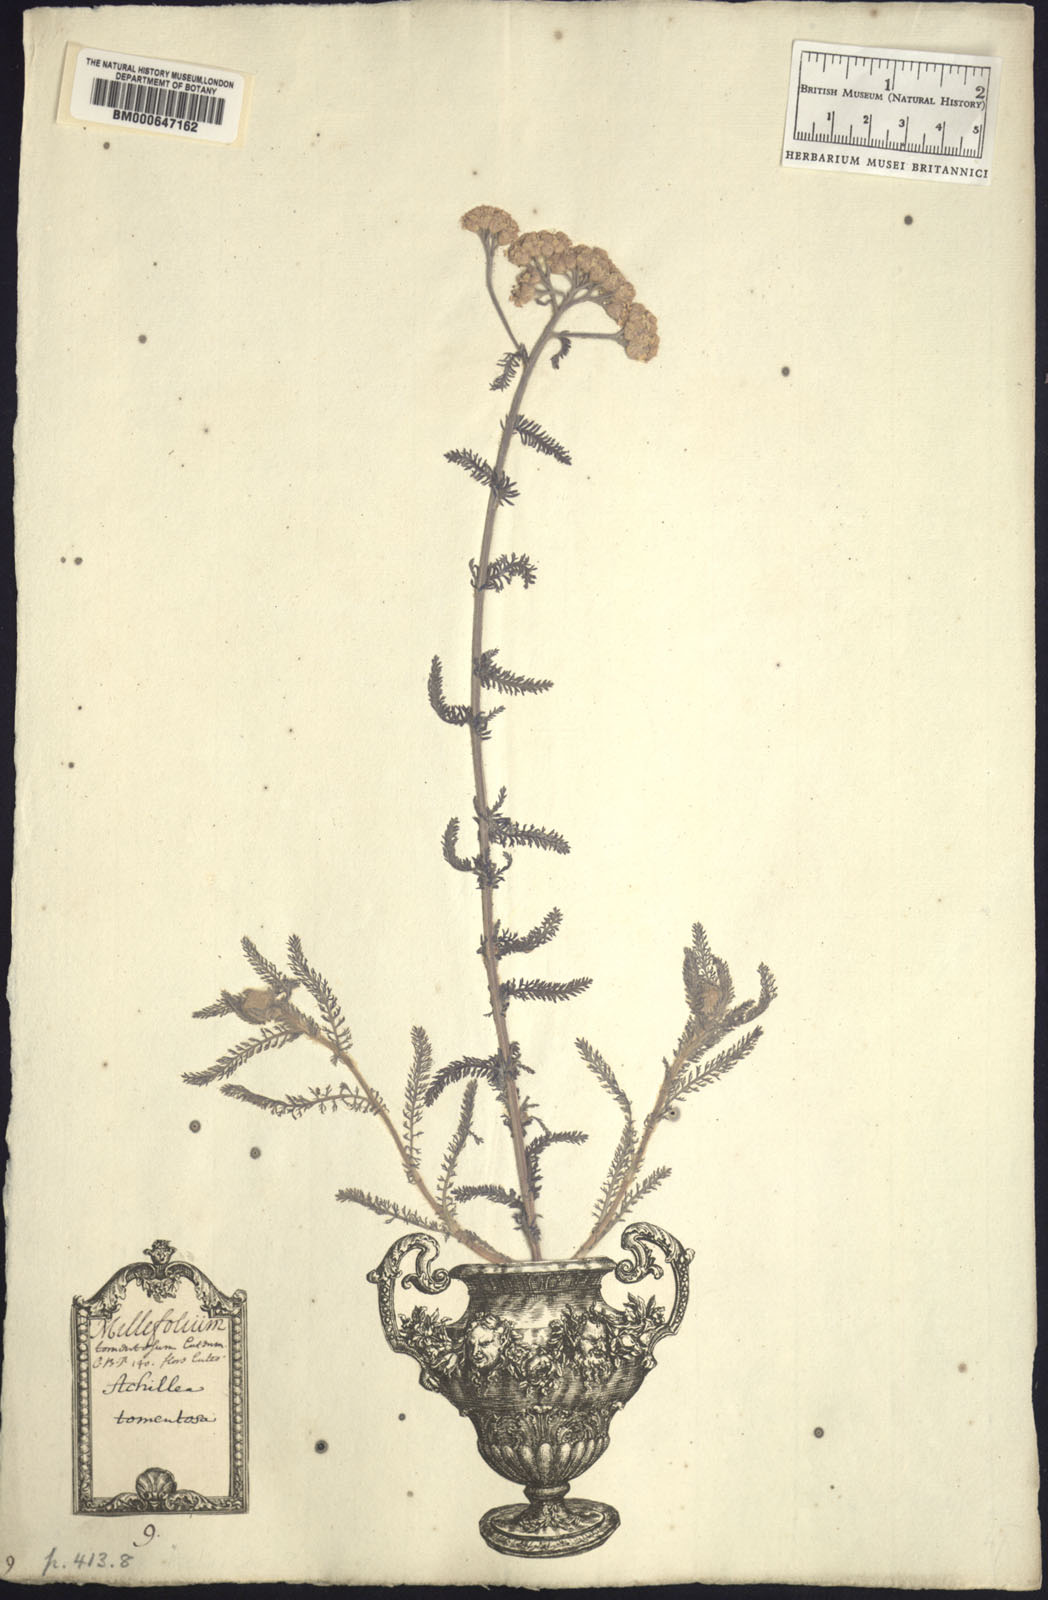 THE NATURAL HISTORY MUSEUM, LONDON
DEPARTMENT OF BOTANY
BM000647162
1 2
BRITISH MUSEUM (NATURAL HISTORY)
1 2 3 4 5
HERBARIUM MUSEI BRITANNICI
Millefolium
tomentosum luteum
C.B.P. 140. flore luteo.
Achillea
tomentosa
9.
9 p. 413.8